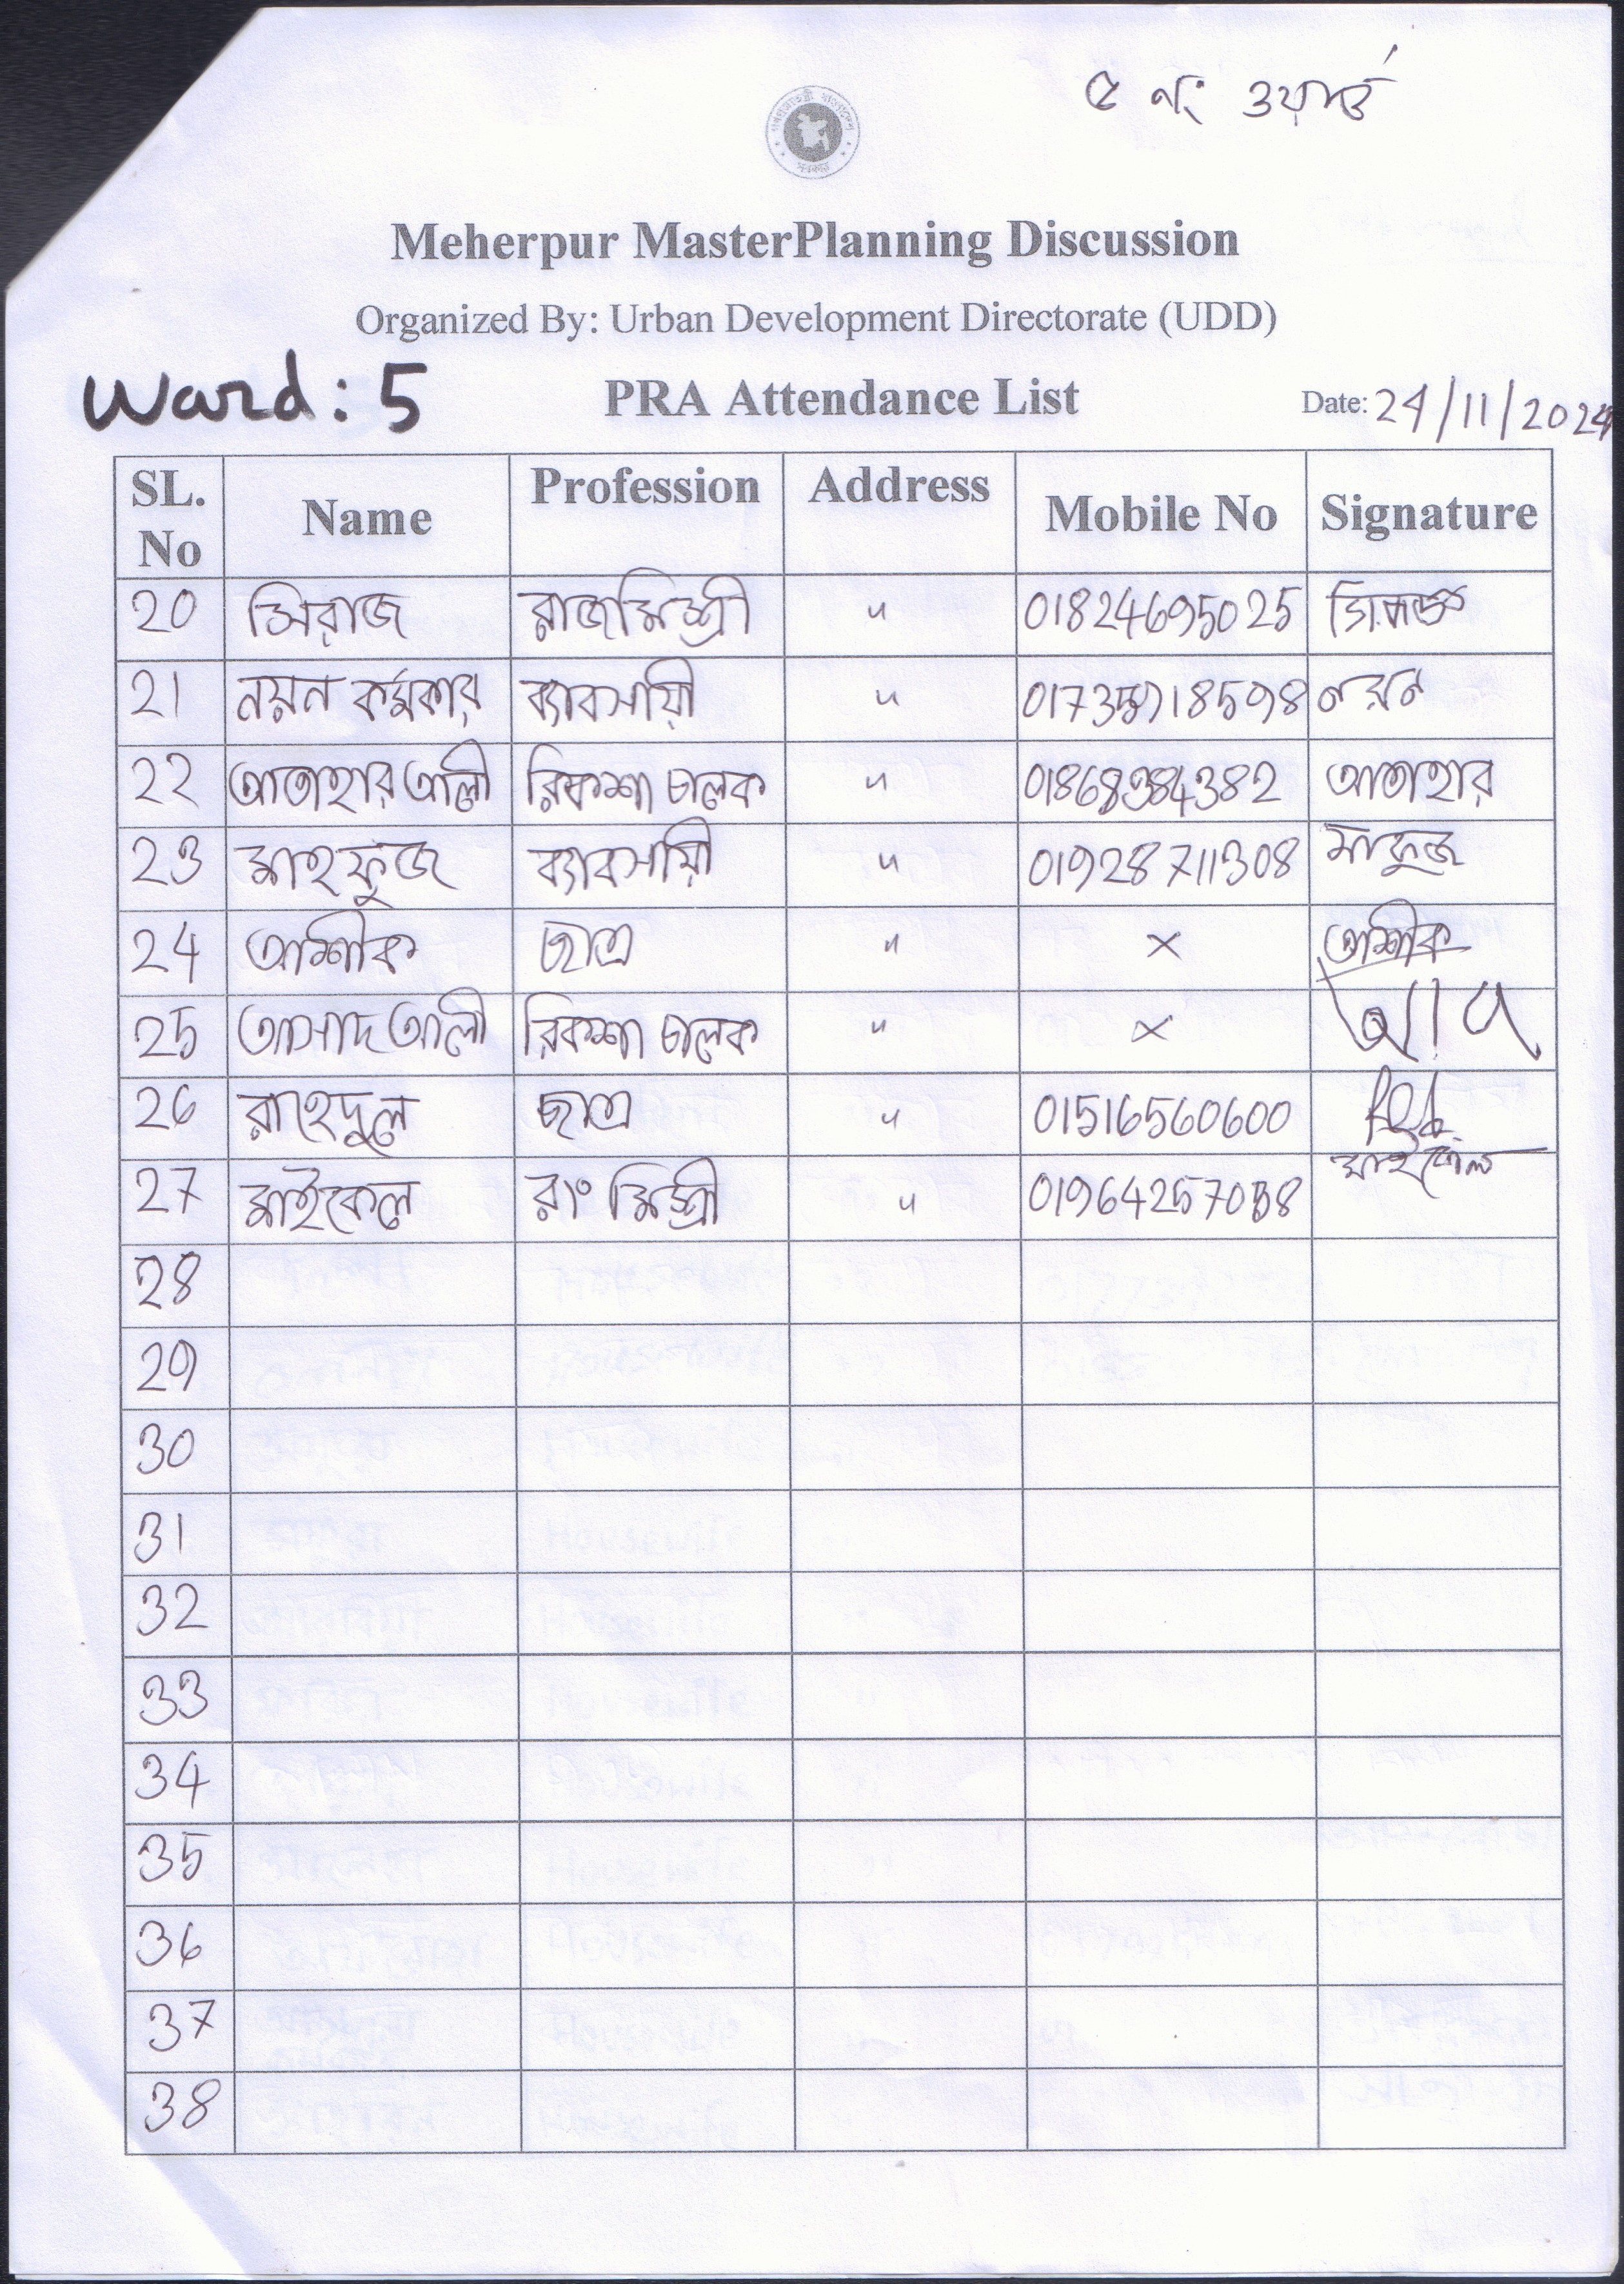 ৫ নং ওয়ার্ড
গণপ্রজাতন্ত্রী বাংলাদেশ
সরকার
Meherpur MasterPlanning Discussion
Organized By: Urban Development Directorate (UDD)
Ward: 5 PRA Attendance List Date: 24/11/2024
SL. No Name Profession Address Mobile No Signature
20 সিরাজ রাজমিস্ত্রী " 01824695025
21 নয়ন কর্মকার ব্যাবসায়ী " নয়ন
22 আতাহার আলী রিকশা চালক " আতাহার
23 মাহফুজ ব্যাবসায়ী " 01928711308 মাফুজ
24 আশীক ছাত্র " × আশীক
25 আসাদ আলী রিকশা চালক " ×
26 রাহেদুল ছাত্র " 01516560600
27 মাইকেল রাং মিস্ত্রী " মাইকেল
28
29
30
31
32
33
34
35
36
37
38